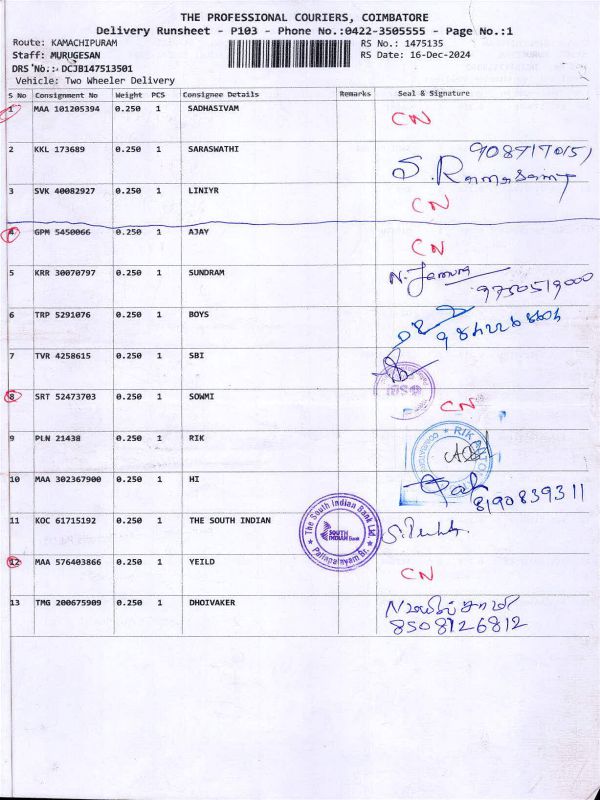 THE PROFESSIONAL COURIERS, COIMBATORE
Delivery Runsheet - P103 - Phone No.:0422-3505555 - Page No.:1
Route: KAMACHIPURAM RS No.: 1475135
Staff: MURUGESAN RS Date: 16-Dec-2024
DRS No.: DCJB147513501
Vehicle: Two Wheeler Delivery
S No Consignment No Weight PCS Consignee Details Remarks Seal & Signature
1 MAA 101205394 0.250 1 SADHASIVAM CN
2 KKL 173689 0.250 1 SARASWATHI S. Ramasamy
3 SVK 40082927 0.250 1 LINIYR CN
4 GPM 5450066 0.250 1 AJAY CN
5 KRR 30070797 0.250 1 SUNDRAM 9750519000
6 TRP 5291076 0.250 1 BOYS
7 TVR 4258615 0.250 1 SBI
8 SRT 52473703 0.250 1 SOWMI CN
9 PLN 21438 0.250 1 RIK RIK
COIMBATORE
10 MAA 302367900 0.250 1 HI 8190839311
11 KOC 61715192 0.250 1 THE SOUTH INDIAN
The South Indian Bank Ltd.
SOUTH
INDIAN Bank
12 MAA 576403866 0.250 1 YEILD CN
13 TMG 200675909 0.250 1 DHOIVAKER
8508126812